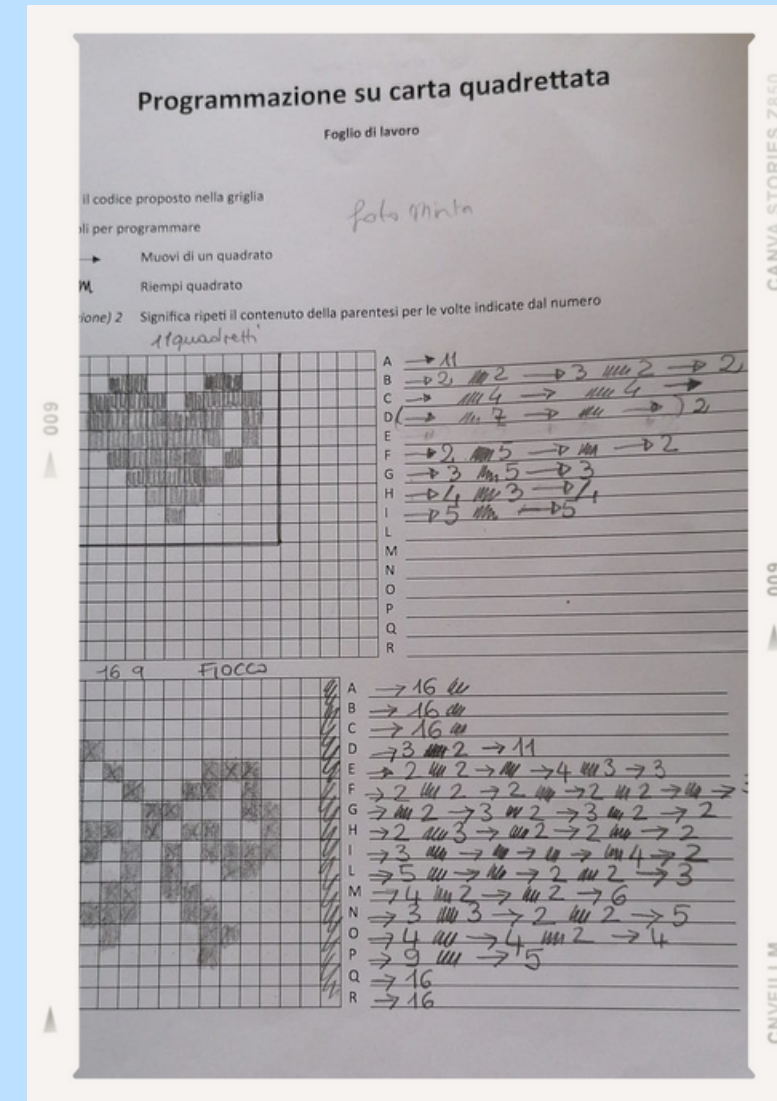 Programmazione su carta quadrettata
Foglio di lavoro
il codice proposto nella griglia
li per programmare
→ Muovi di un quadrato
Riempi quadrato
ione) 2 Significa ripeti il contenuto della parentesi per le volte indicate dal numero
11 quadretti
A → 11
B → 2 m 2 → 3 m 2 → 2
C → m 4 → m 4 →
D ( → m 7 → m → ) 2
E
F → 2 m 5 → m → 2
G → 3 m 5 → 3
H → 4 m 3 → 4
I → 5 m → 5
L
M
N
O
P
Q
R
16 9 FIOCCO
A → 16
B → 16
C → 16
D → 3 m 2 → 11
E → 2 m 2 → m → 4 m 3 → 3
F → 2 m 2 → 2 m → 2 m 2 → m →
G → m 2 → 3 m 2 → 3 m 2 → 2
H → 2 m 3 → m 2 → 2 m → 2
I → 3 m → m → m → m 4 → 2
L → 5 m → m → 2 m 2 → 3
M → 4 m 2 → m 2 → 6
N → 3 m 3 → 2 m 2 → 5
O → 4 m → 4 m 2 → 4
P → 9 m → 5
Q → 16
R → 16
009
CANVA STORIES Z850
009
CNVFILLM